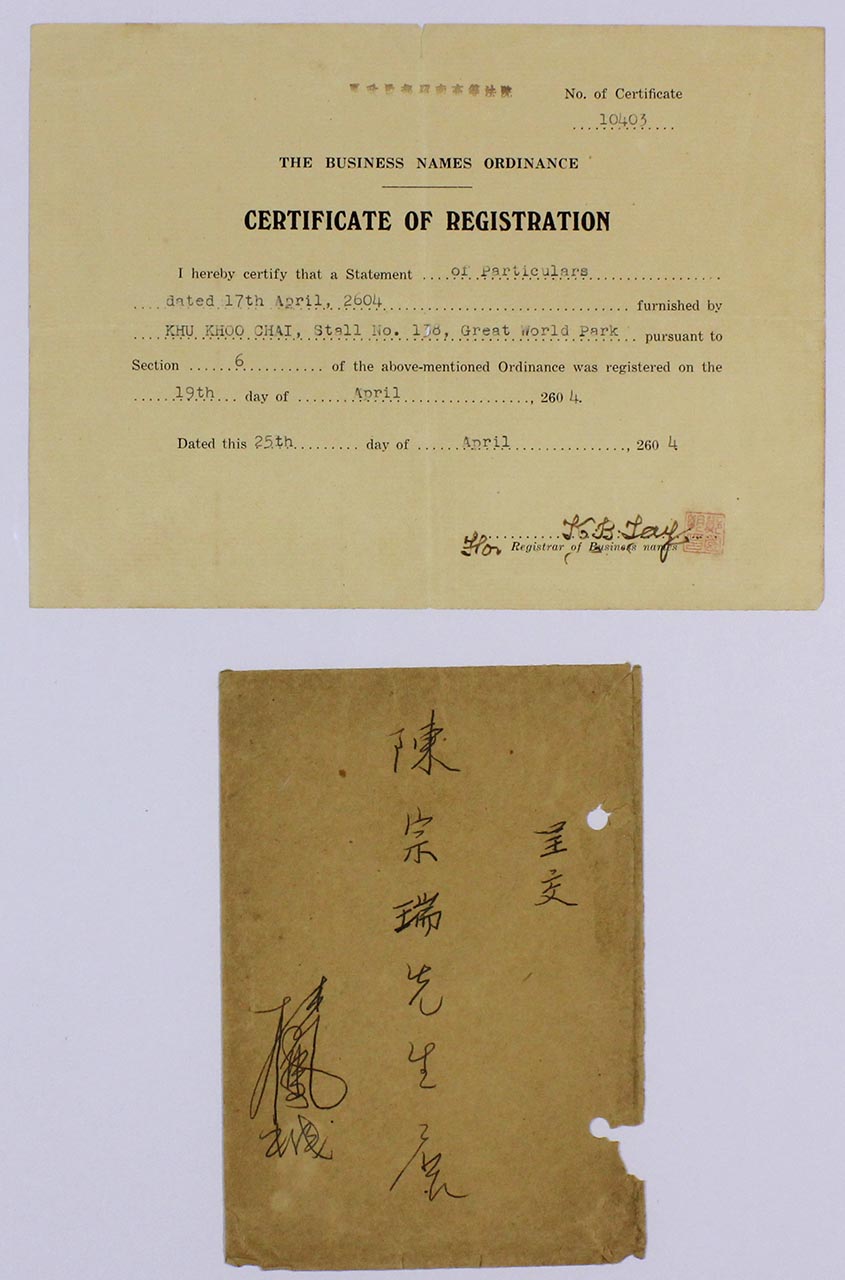 高等法院
No. of Certificate
10403
THE BUSINESS NAMES ORDINANCE
CERTIFICATE OF REGISTRATION
I hereby certify that a Statement of Particulars
dated 17th April, 2604 furnished by
KHU KHOO CHAI, Stall No. 138, Great World Park pursuant to
Section 6 of the above-mentioned Ordinance was registered on the
19th day of April, 2604.
Dated this 25th day of April, 2604
K. B. Tay.
For Registrar of Business names
呈交
陳宗瑞先生展